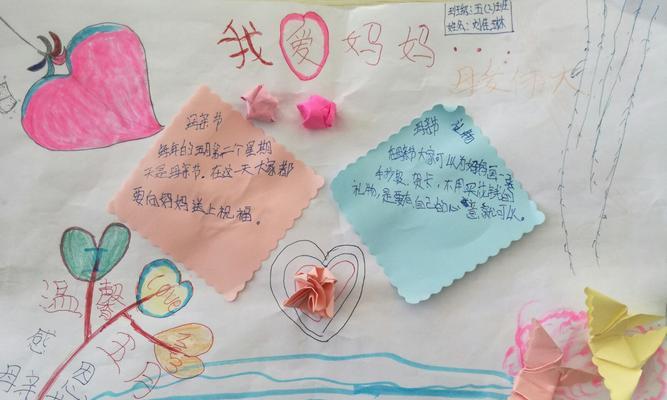 班级:五(2)班
姓名:刘佳琳
我爱妈妈...
母爱伟大
母亲节
每年的五月第二个星期
天是母亲节。在这一天大家都
要向妈妈送上祝福。
母亲节 礼物
在母亲节大家可以为妈妈画一张
手抄报、贺卡,不用买花钱的
礼物,是要有自己的心意就可以。
I
Love
温馨
五月
感恩
母亲